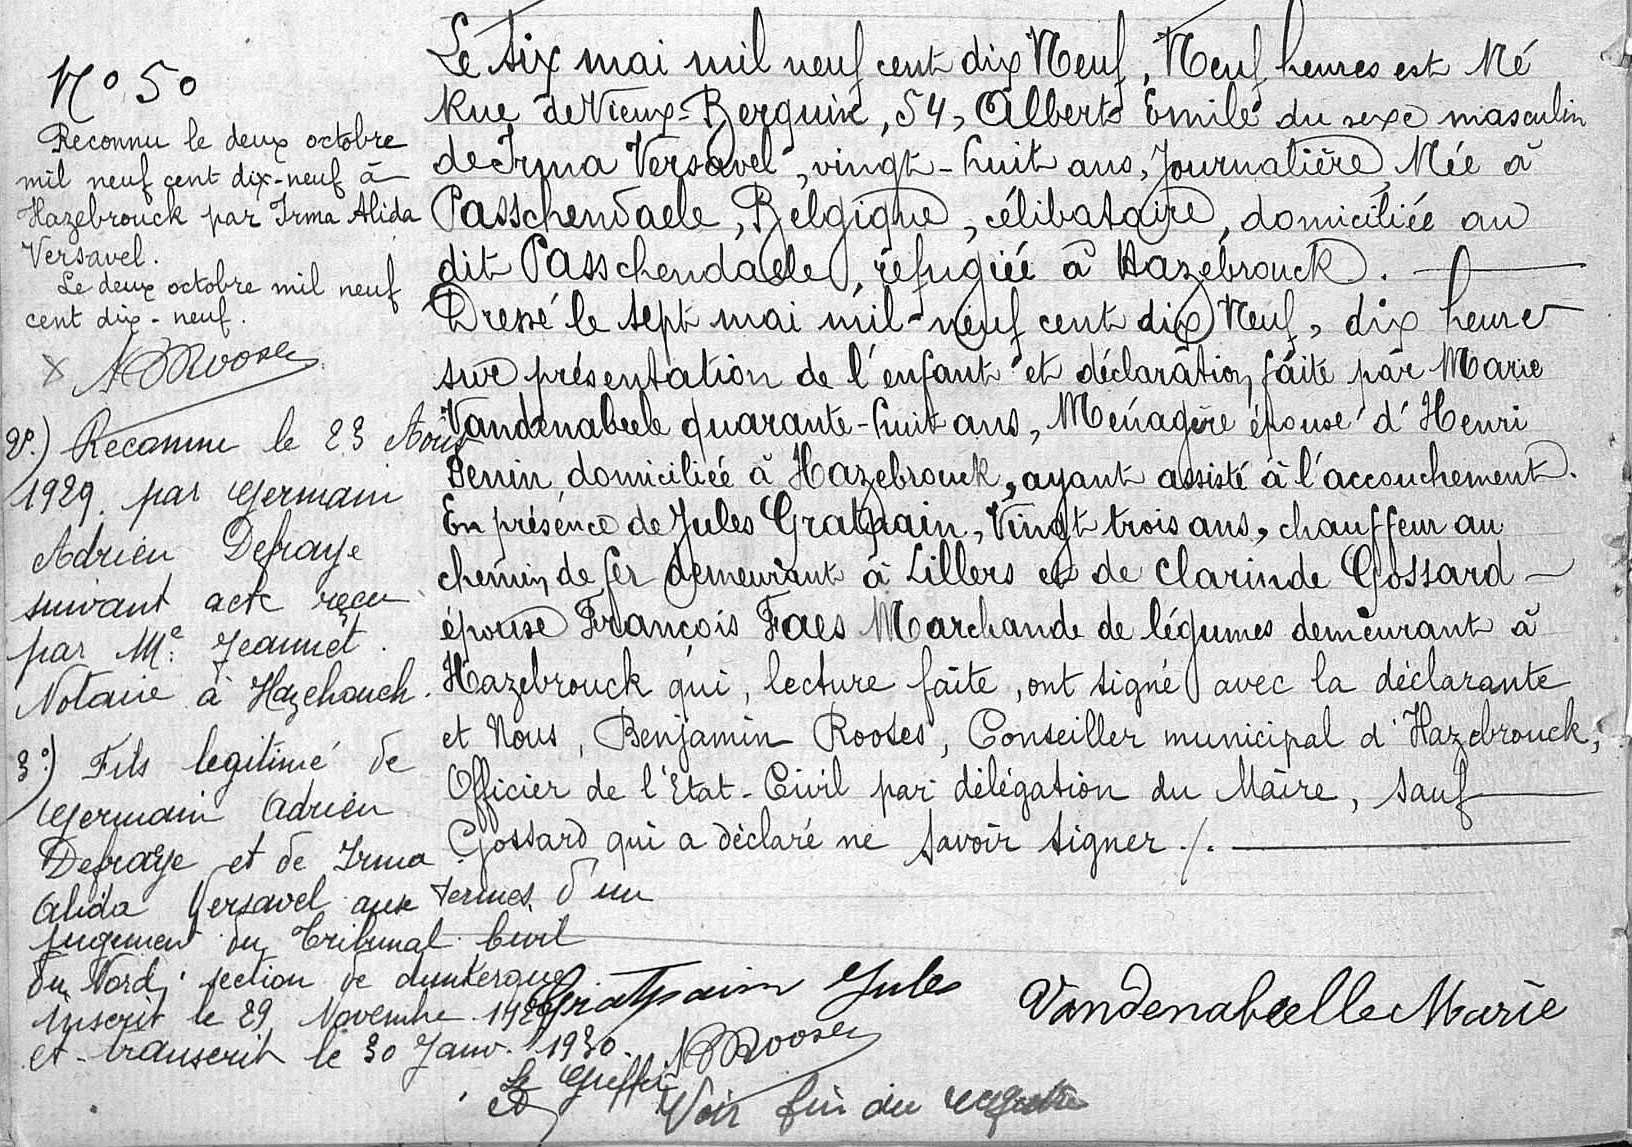 No 50
Reconnu le deux octobre
mil neuf cent dix-neuf à
Hazebrouck par Irma Alida
Versavel.
Le deux octobre mil neuf
cent dix-neuf.
2o.) Reconnu le 23 Aout
1929. par Germain
Adrien Defraye
suivant acte reçu
par Me. Jeannet.
Notaire à Hazebrouck.
3o.) Fils legitimé de
Germain Adrien
Defraye et de Irma
Alida Versavel aux termes d'un
jugement du Tribunal Civil
du Nord, section de dunkerque
inscrit le 29 Novembre 1929
et transcrit le 30 Janv. 1930.
Le Greffier
Le six mai mil neuf cent dix Neuf, Neuf heures est Né
Rue de Vieux-Berquin, 54, Albert Emile du sexe masculin
de Irma Versavel, vingt-huit ans, Journalière, Née à
Passchendaele, Belgique, célibataire, domiciliée au
dit Passchendaele, réfugiée à Hazebrouck.
Dressé le sept mai mil-neuf cent dix Neuf, dix heures
sur présentation de l'enfant et déclaration faite par Marie
Vandenabeele quarante-huit ans, Ménagère épouse d'Henri
Benin, domiciliée à Hazebrouck, ayant assisté à l'accouchement.
En présence de Jules Gratpain, Vingt trois ans, chauffeur au
chemin de fer demeurant à Lillers et de Clarinde Gossard -
épouse François Faes Marchande de légumes demeurant à
Hazebrouck qui, lecture faite, ont signé avec la déclarante
et Nous, Benjamin Rooses, Conseiller municipal d'Hazebrouck,
Officier de l'Etat-Civil par délégation du Maire, sauf
Gossard qui a déclaré ne savoir signer ./.
Gratpain Jules
Vandenabeelle Marie
Voir fin du registre